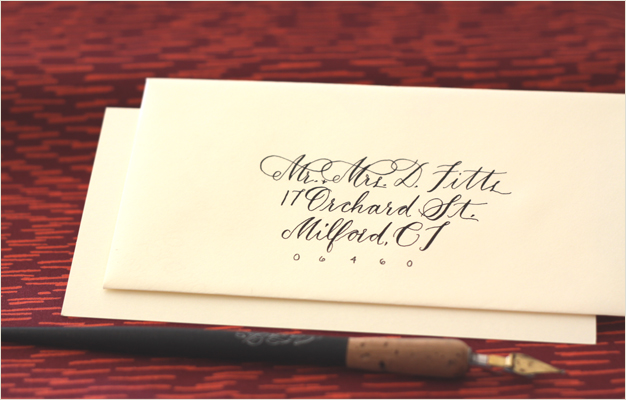 Mr. & Mrs. D. Fitts
17 Orchard St.
Milford, CT
06460